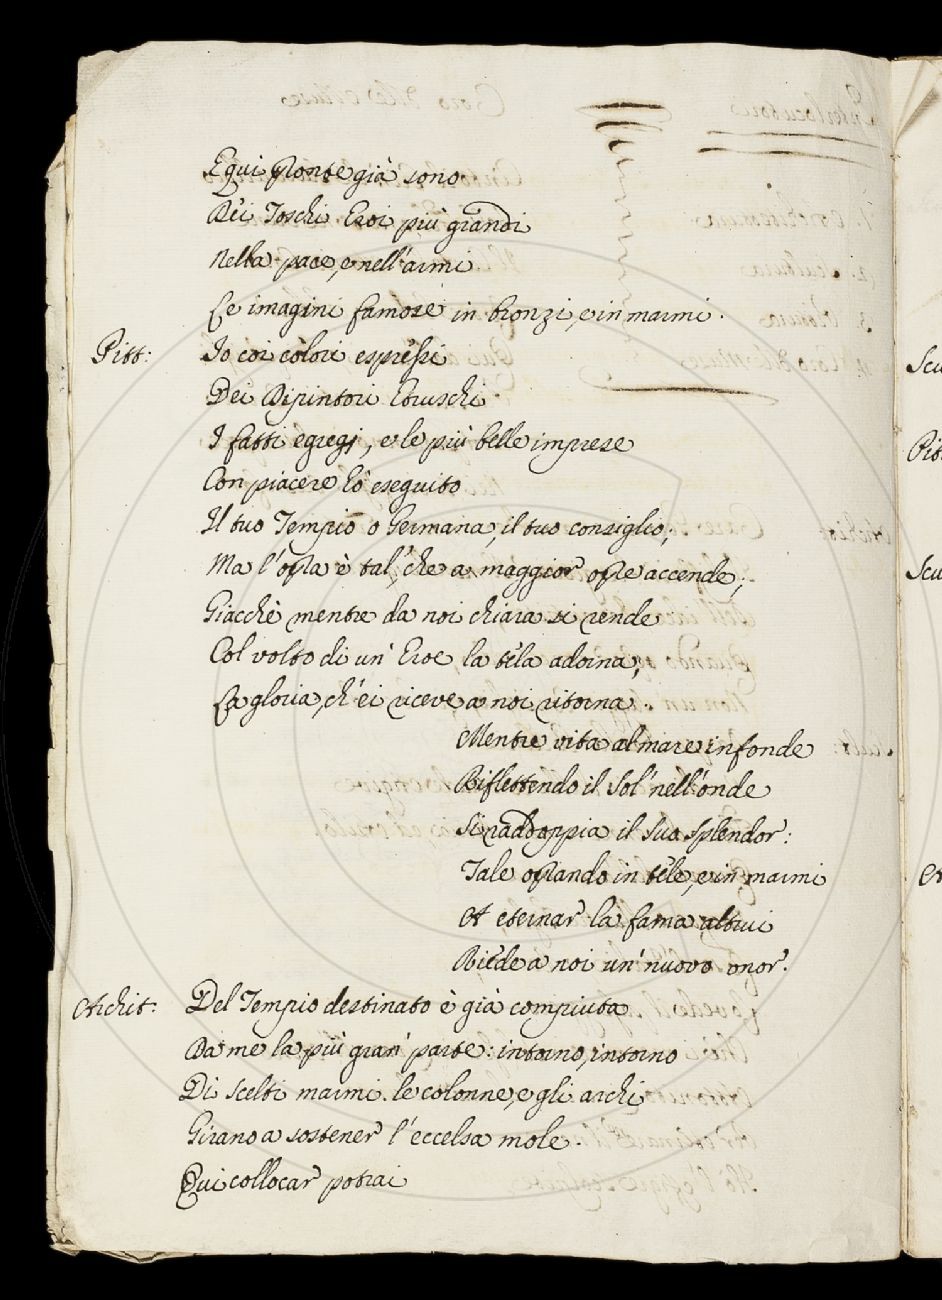 E qui pronte già sono
Dèi Toschi Eroi più grandi
Nella pace, e nell'armi
Le imagini famose in bronzi, e in marmi.
Pitt: Io coi colori espressi
Dei Dipintori Etruschi
I fatti egregj, e le più belle imprese
Con piacere hò eseguito
Il tuo Tempio o Germana, il tuo consiglio;
Ma l'opra è tal, che a maggior opre accende;
Giacchè mentre da noi chiara si rende
Col volto di un' Eroe la tela adorna,
La gloria, ch'ei riceve a noi ritorna.
Mentre vita al mare infonde
Riflettendo il Sol nell'onde
Si raddoppia il suo splendor:
Tale oprando in tele, e in marmi
A eternar la fama altrui
Riede a noi un' nuovo onor.
Archit: Del Tempio destinato è già compiuta
Da me la più gran' parte: intorno, intorno
Di scelti marmi le colonne, e gli archi
Girano a sostener l'eccelsa mole.
Qui collocar potrai
Scu
Pitt
Scu
A